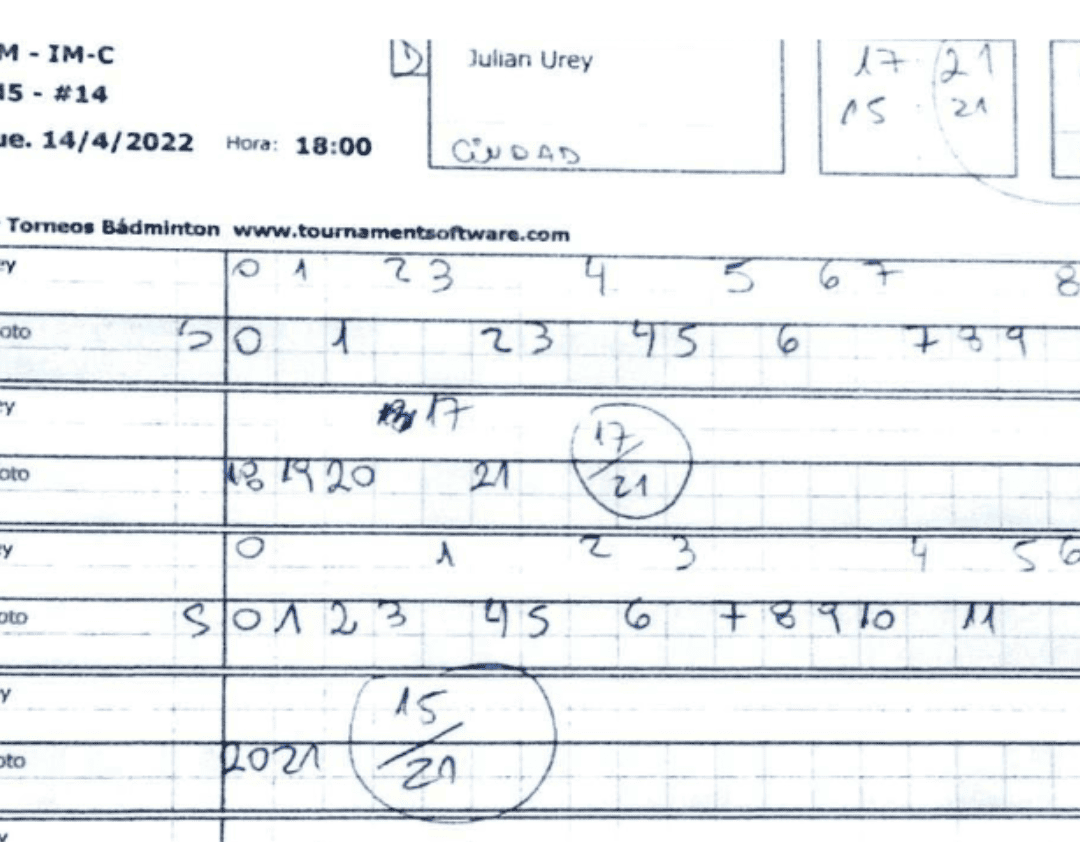 M - IM-C
Julian Urey
17 21
15 - #14
15 21
ue. 14/4/2022 Hora: 18:00
CIUDAD
Torneos Bádminton www.tournamentsoftware.com
ey 0 1 2 3 4 5 6 7 8
oto S 0 1 2 3 4 5 6 7 8 9
ey 17 17
oto 18 19 20 21 21
y 0 1 2 3 4 5 6
oto S 0 1 2 3 4 5 6 7 8 9 10 11
y 15
oto 20 21 21
y